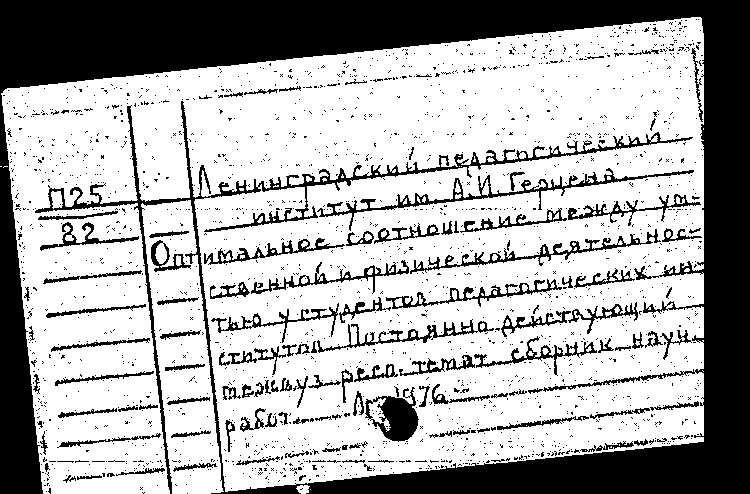 П25
82
Ленинградский педагогический
институт им. А.И. Герцена.
Оптимальное соотношение между ум-
ственной и физической деятельнос-
тью у студентов педагогических ин-
ститутов. Постоянно действующий
межвуз. респ. темат. сборник науч.
работ. 1976.